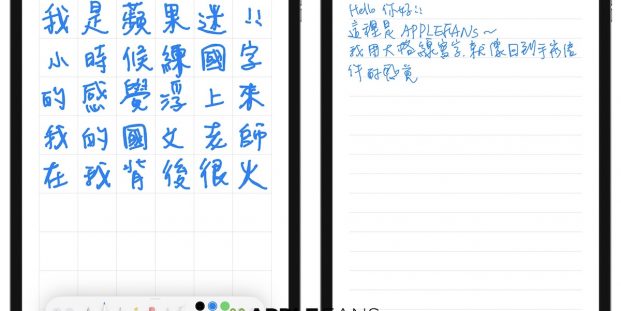 我是蘋果迷!!
小時候練國字
的感覺浮上來
我的國文老師
在我背後很火
Hello 你好!!
這裡是 APPLEFANS～
我用大格線寫字.就像回到手寫信
件的感覺
APPLEFANS